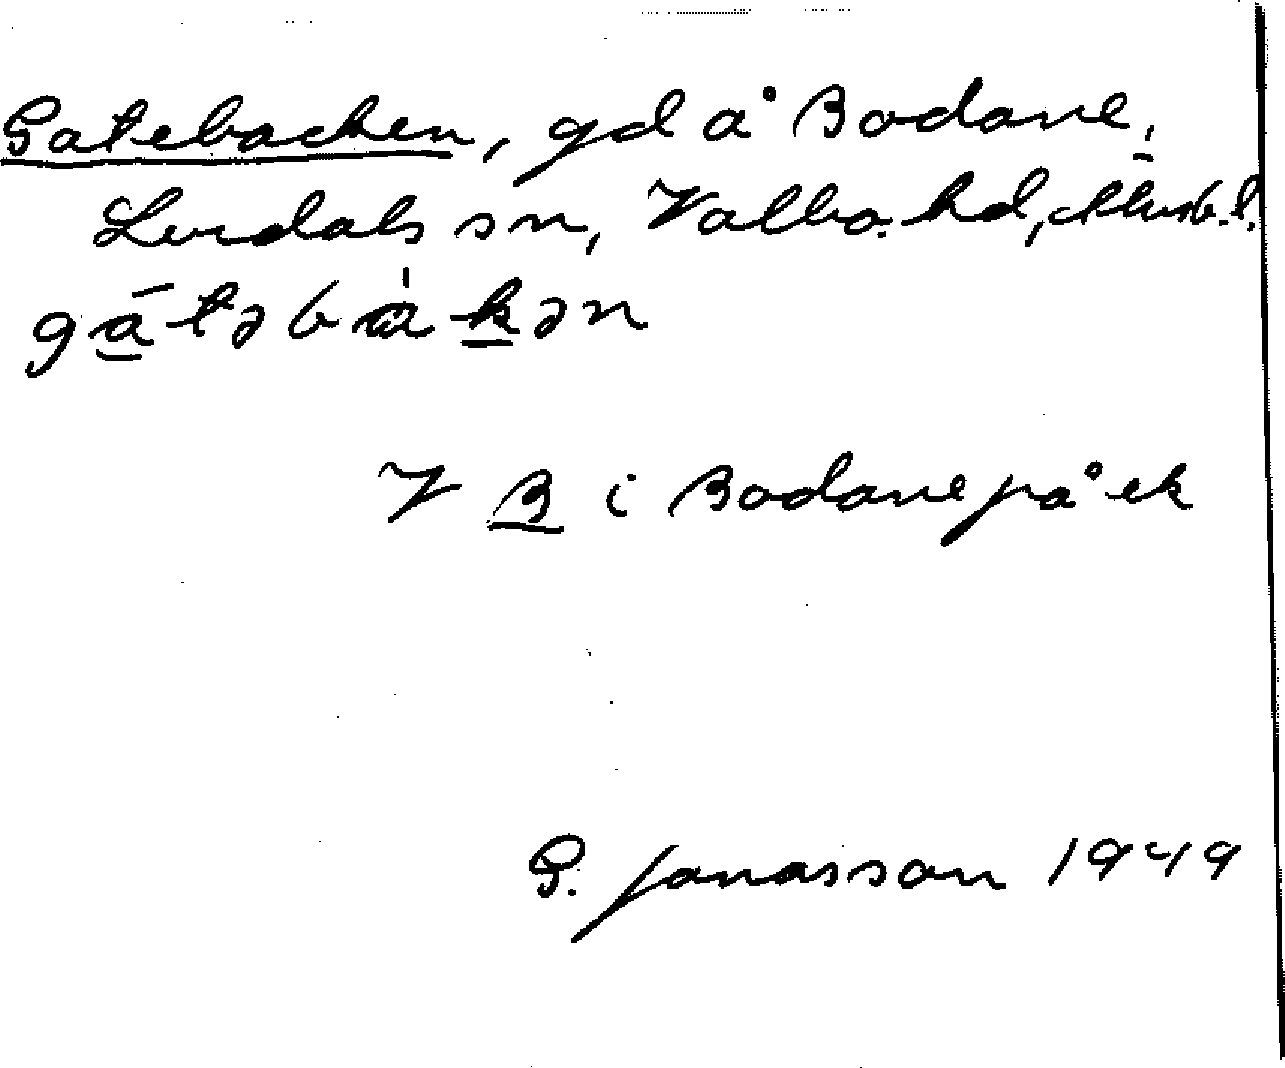 Gatebacken, gd å Bodane,
Lerdals sn, Valbo hd, Älvsb. l.
gātəbàkən
V B i Bodane på ek
G. Jonasson 1949